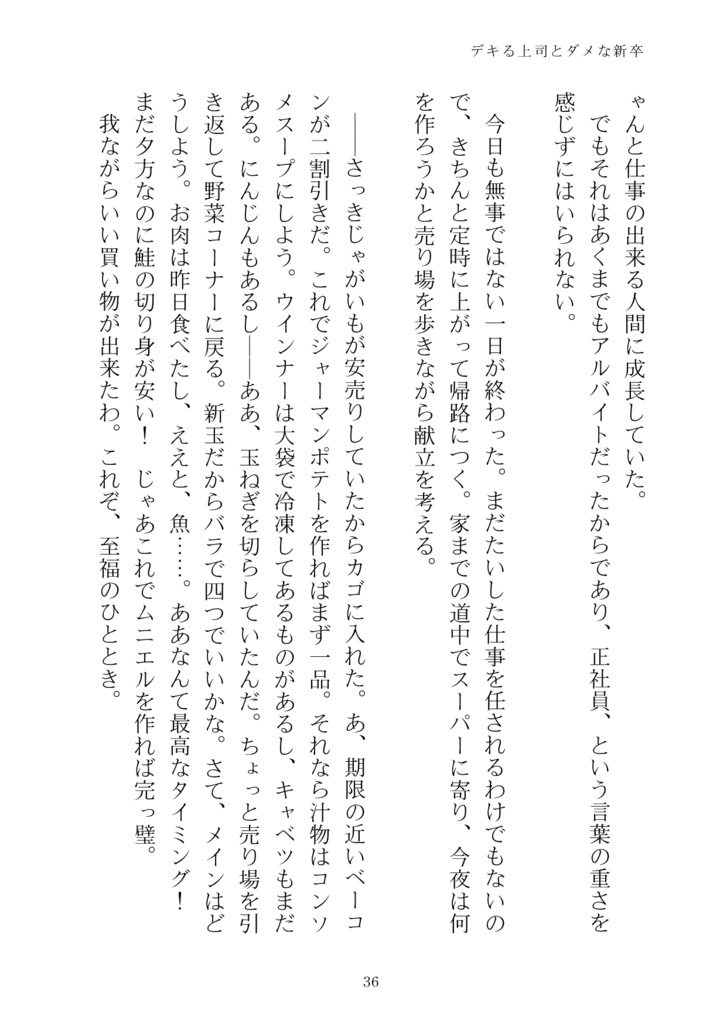 デキる上司とダメな新卒
ゃんと仕事の出来る人間に成長していた。
でもそれはあくまでもアルバイトだったからであり、正社員、という言葉の重さを
感じずにはいられない。
今日も無事ではない一日が終わった。まだたいした仕事を任されるわけでもないの
で、きちんと定時に上がって帰路につく。家までの道中でスーパーに寄り、今夜は何
を作ろうかと売り場を歩きながら献立を考える。
――さっきじゃがいもが安売りしていたからカゴに入れた。あ、期限の近いベーコ
ンが二割引きだ。これでジャーマンポテトを作ればまず一品。それなら汁物はコンソ
メスープにしよう。ウインナーは大袋で冷凍してあるものがあるし、キャベツもまだ
ある。にんじんもあるし――ああ、玉ねぎを切らしていたんだ。ちょっと売り場を引
き返して野菜コーナーに戻る。新玉だからバラで四つでいいかな。さて、メインはど
うしよう。お肉は昨日食べたし、ええと、魚……。ああなんて最高なタイミング！
まだ夕方なのに鮭の切り身が安い！　じゃあこれでムニエルを作れば完っ璧。
我ながらいい買い物が出来たわ。これぞ、至福のひととき。
36